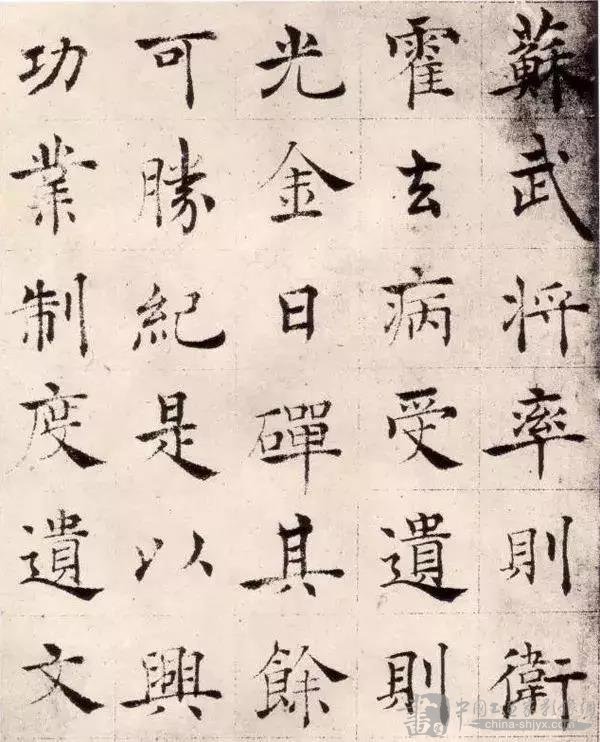 蘇武將率則衛
霍去病受遺則
光金日磾其餘
可勝紀是以興
功業制度遺文
china-shjyx.com